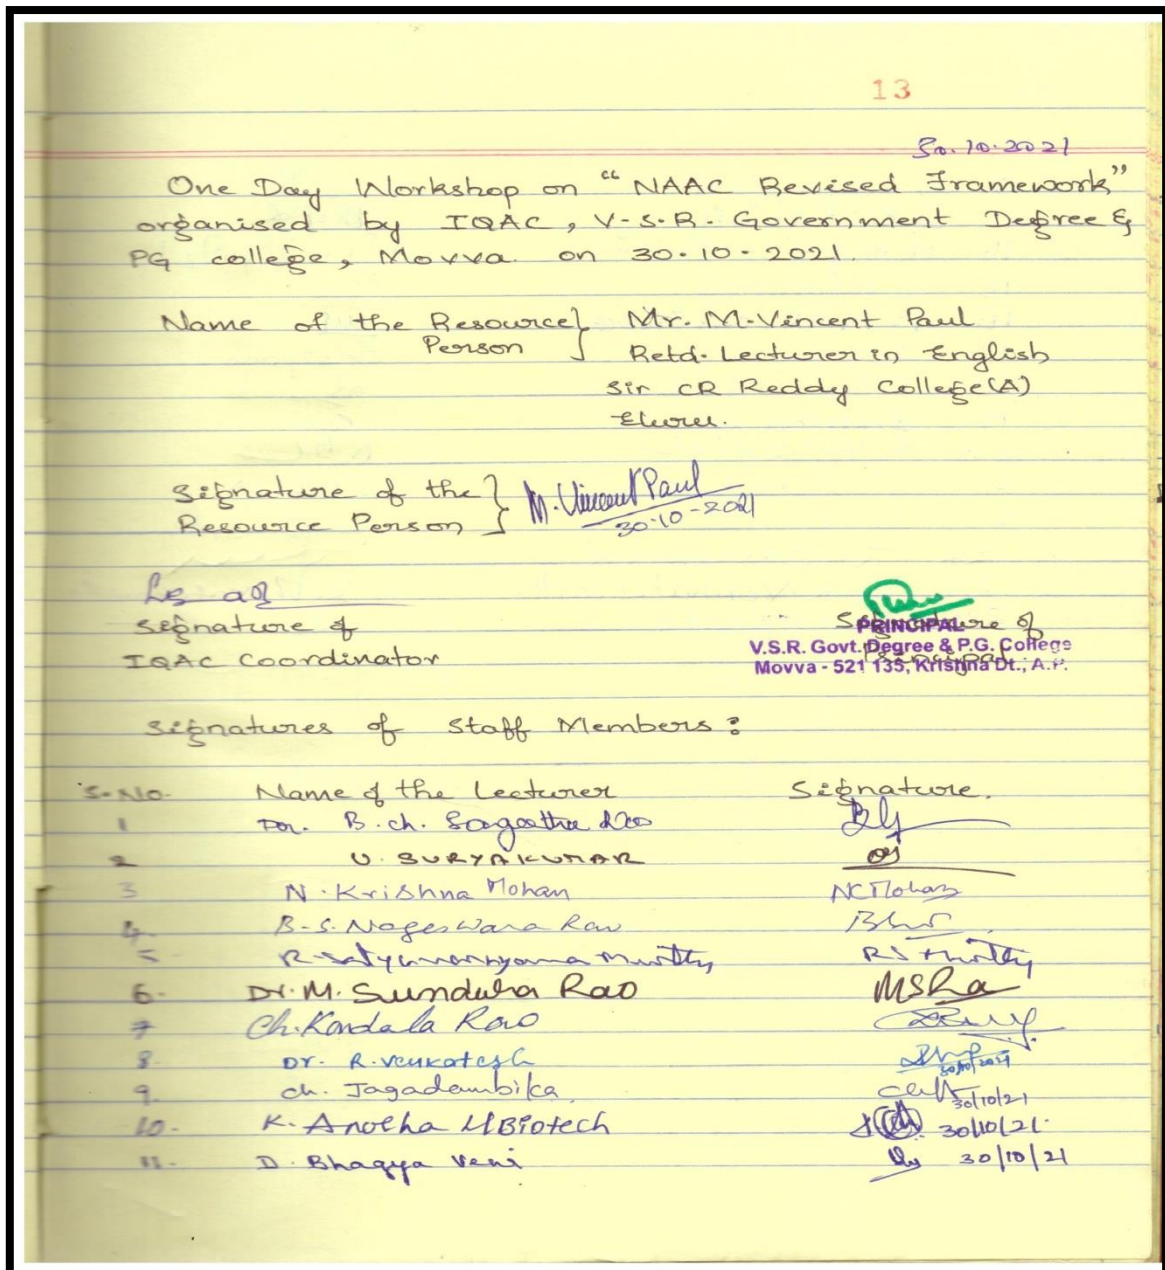 13
30.10.2021
One Day Workshop on "NAAC Revised Framework"
organised by IQAC, V.S.R. Government Degree &
PG college, Movva. on 30.10.2021.
Name of the Resource } Mr. M. Vincent Paul
Person Retd. Lecturer in English
Sir CR Reddy College (A)
Eluru.
Signature of the } M. Vincent Paul
Resource Person 30-10-2021
Signature of Signature of
IQAC Coordinator Principal
PRINCIPAL
V.S.R. Govt. Degree & P.G. College
Movva - 521 135, Krishna Dt., A.P.
Signatures of Staff Members :
S.No. Name of the Lecturer Signature.
1 Dr. B. ch. Rao
2 U. SURYAKUMAR
3 N. Krishna Mohan NC Mohan
4. B.S. Nageswara Rao
5 R. Satyanarayana Murthy RS Murthy
6. Dr. M. Sundara Rao MSRa
7 Ch. Kondala Rao
8. Dr. R. Venkatesh 30/10/2021
9. ch. Jagadambika 30/10/21
10. K. Anotha Biotech 30/10/21.
11. D. Bhagya Veni 30/10/21